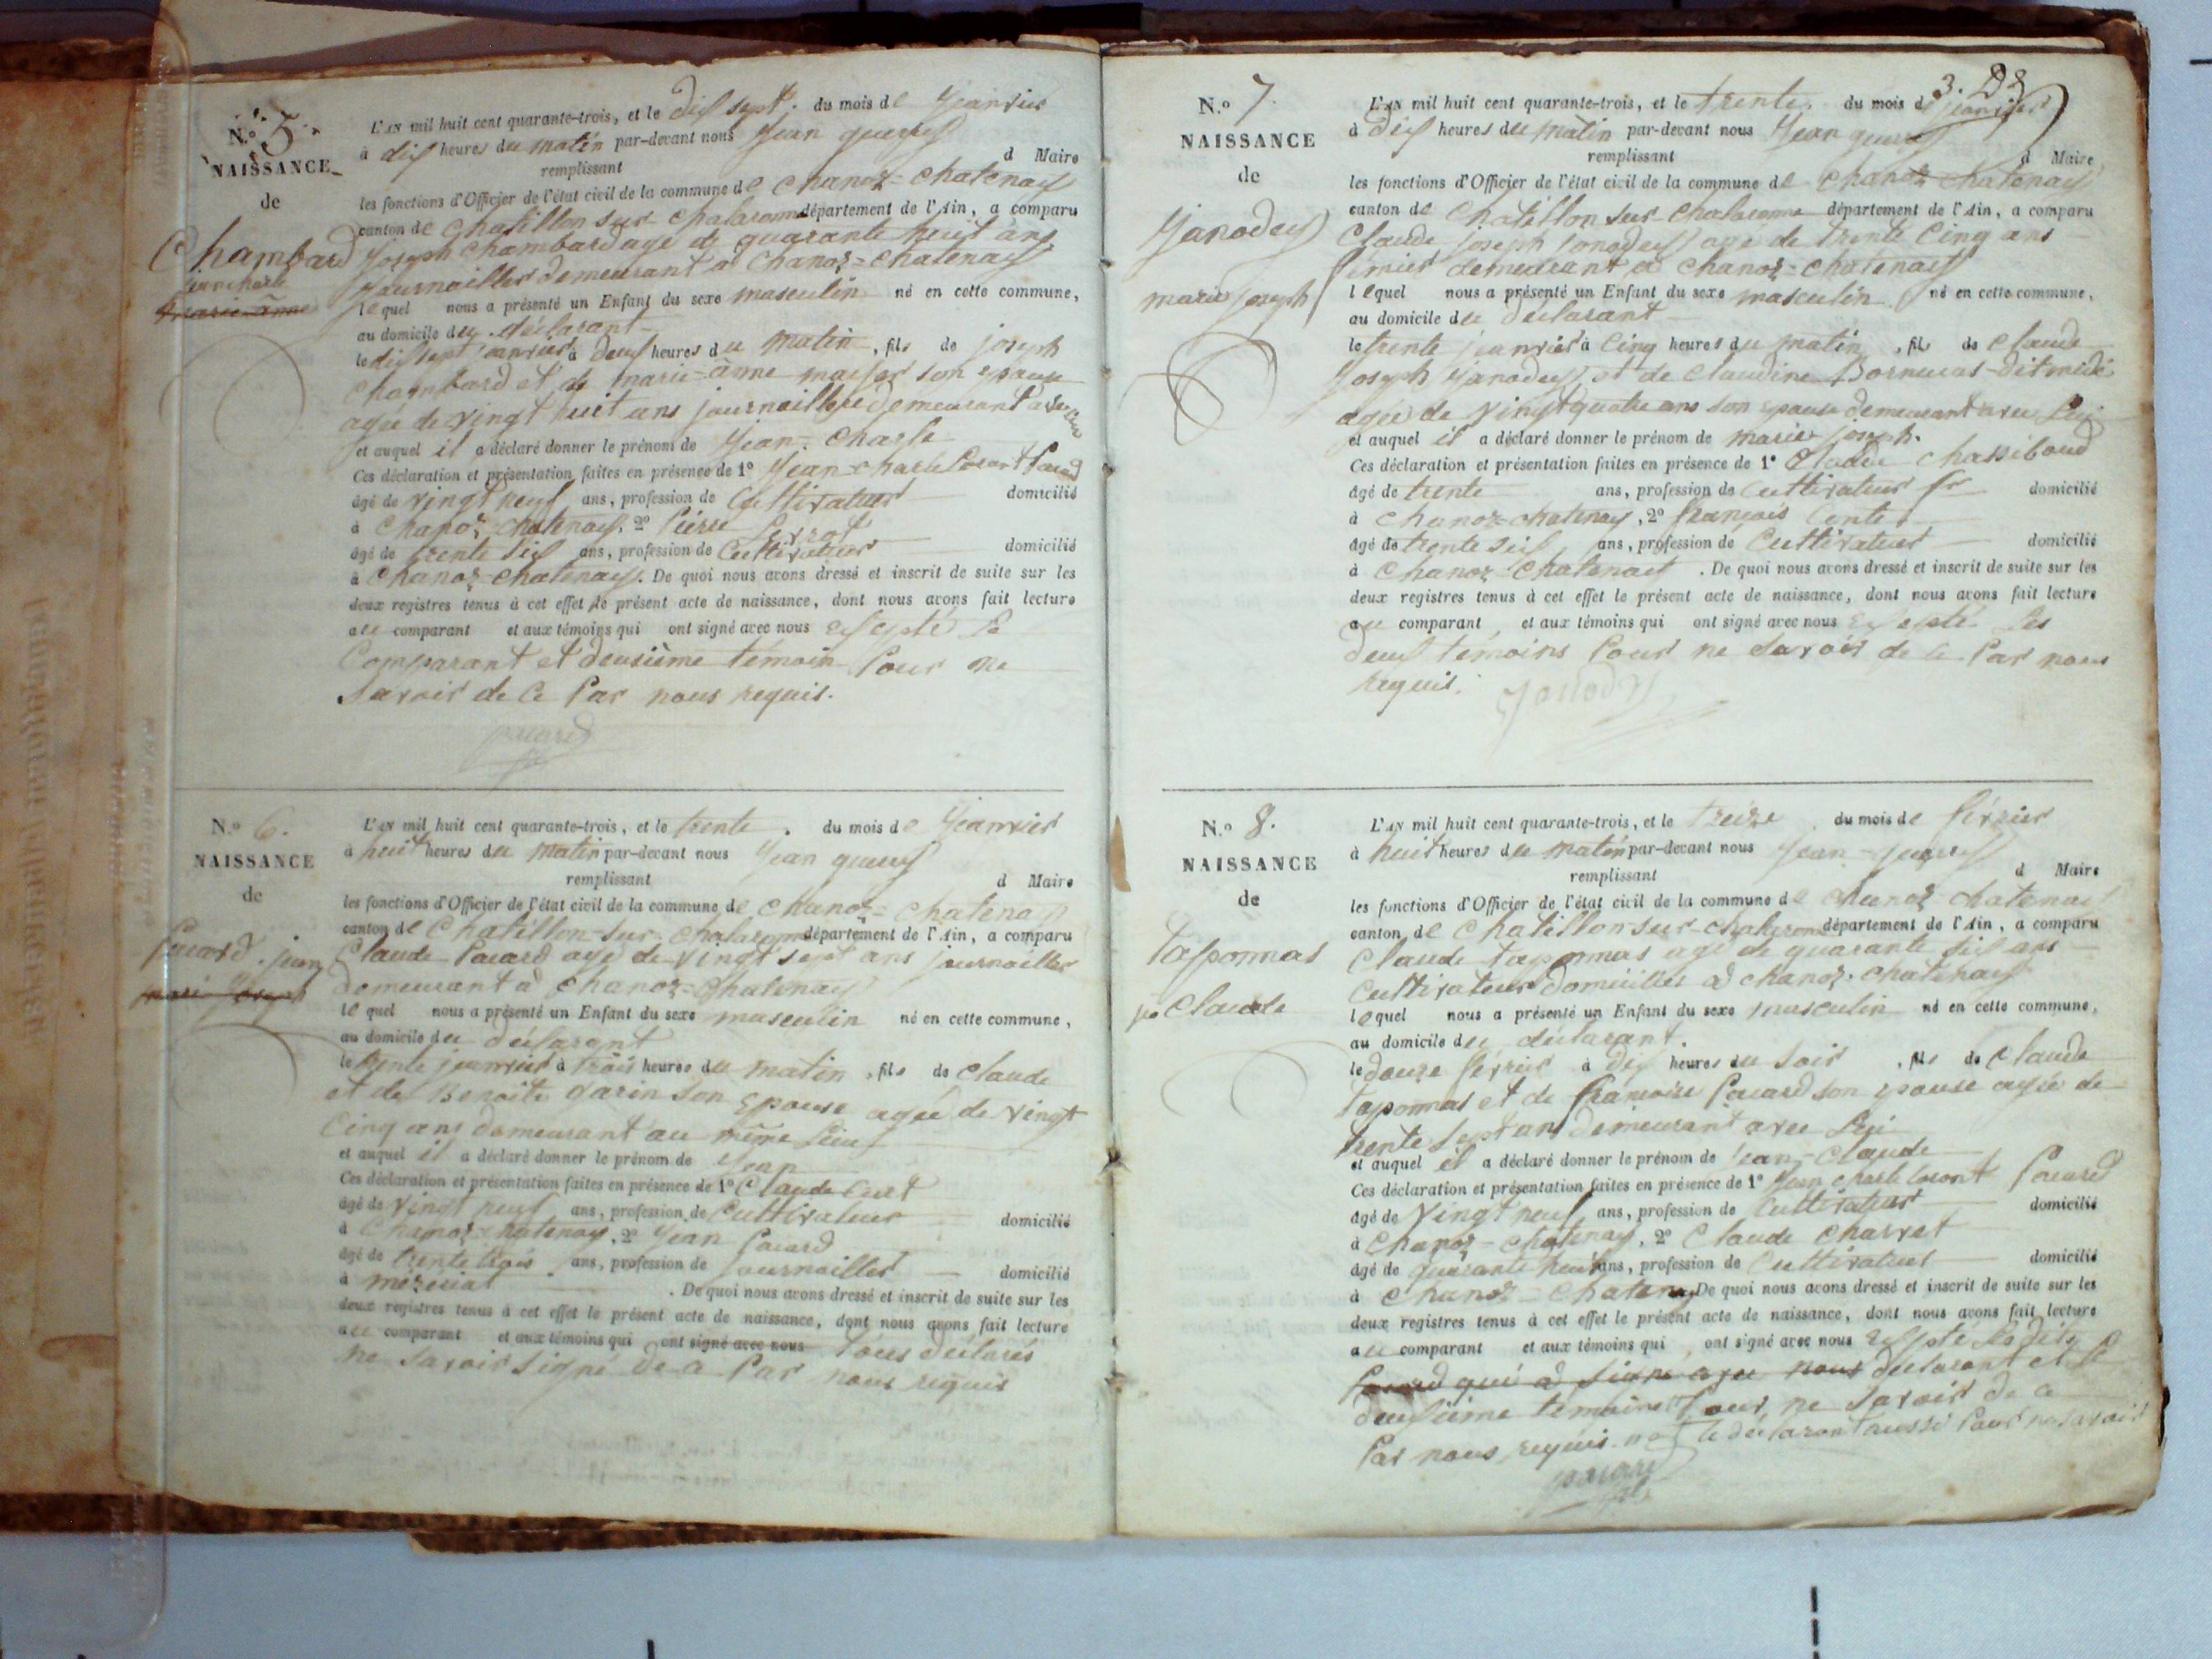 N.º 5.
NAISSANCE
de
Chambard
jean charle
marie anne
L'AN mil huit cent quarante-trois, et le dix sept. du mois de Jeanvier
à dix heures du matin par-devant nous Jean
remplissant d Maire
les fonctions d'Officier de l'état civil de la commune de Chanoz=Chatenay
canton de Chatillon sur Chalaronne département de l'Ain, a comparu
Joseph Chambard agé de quarante huit ans
journaillier demeurant a Chanoz=Chatenay
lequel nous a présenté un Enfant du sexe masculin né en cette commune,
au domicile du déclarant
le dix sept janvier à deux heures du matin, fils de joseph
Chambard et de marie=anne son epouse
agée de vingt huit ans journaillere demeurant
et auquel il a déclaré donner le prénom de Jean=Charle
Ces déclaration et présentation faites en présence de 1º Jean=charle
âgé de vingt neuf ans, profession de Cultivateur domicilié
à Chanoz=chatenay, 2º Pierre
âgé de trente six ans, profession de Cultivateur domicilié
à Chanoz=chatenay. De quoi nous avons dressé et inscrit de suite sur les
deux registres tenus à cet effet le présent acte de naissance, dont nous avons fait lecture
au comparant et aux témoins qui ont signé avec nous exsepté le
Comparant et deusième témoin Pour ne
Savoir de ce Par nous requis.
pacard
N.º 6.
NAISSANCE
de
Pacard. jean
marie joseph
L'AN mil huit cent quarante-trois, et le trente. du mois de Jeanvier
à huit heures du matin par-devant nous Jean
remplissant d Maire
les fonctions d'Officier de l'état civil de la commune de Chanoz=Chatenay
canton de Chatillon-sur-Chalaronne département de l'Ain, a comparu
Claude Pacard agé de vingt sept ans journaillier
demeurant a Chanoz=Chatenay
lequel nous a présenté un Enfant du sexe masculin né en cette commune,
au domicile du déclarant
le trente jeanvier à trois heures du matin, fils de Claude
et de Benoite garin son Epouse agée de vingt
Cinq ans demeurant au même lieu
et auquel il a déclaré donner le prénom de Jean
Ces déclaration et présentation faites en présence de 1º Claude
âgé de vingt neuf ans, profession de Cultivateur domicilié
à Chanoz=chatenay, 2º Jean Pacard
âgé de trente trois ans, profession de journaillier domicilié
à mézériat. De quoi nous avons dressé et inscrit de suite sur les
deux registres tenus à cet effet le présent acte de naissance, dont nous avons fait lecture
au comparant et aux témoins qui ont signé avec nous tous déclarés
ne savoir signé de ce Par nous requis
3.
N.º 7.
NAISSANCE
de
Janodey
marie joseph
L'AN mil huit cent quarante-trois, et le trente. du mois de jeanvier
à dix heures du matin par-devant nous Jean
remplissant d Maire
les fonctions d'Officier de l'état civil de la commune de Chanoz Chatenay
canton de Chatillon sur Chalaronne département de l'Ain, a comparu
Claude joseph Janodey agé de trente Cinq ans
fermier demeurant a Chanoz=Chatenay
lequel nous a présenté un Enfant du sexe masculin né en cette commune,
au domicile du déclarant
le trente jeanvier à Cinq heures du matin, fils de Claude
Joseph Janodey, et de Claudine
agée de vingt quatre ans son epouse demeurant avec Lui
et auquel il a déclaré donner le prénom de marie joseph.
Ces déclaration et présentation faites en présence de 1º Claude
âgé de trente ans, profession de Cultivateur domicilié
à Chanoz-chatenay, 2º français
âgé de trente six ans, profession de Cultivateur domicilié
à Chanoz-Chatenay. De quoi nous avons dressé et inscrit de suite sur les
deux registres tenus à cet effet le présent acte de naissance, dont nous avons fait lecture
au comparant et aux témoins qui ont signé avec nous exsepté les
deux témoins Pour ne Savoir de ce Par nous
requis.
Janodey
N.º 8.
NAISSANCE
de
taponnas
jn Claude
L'AN mil huit cent quarante-trois, et le treize du mois de février
à huit heures du matin par-devant nous Jean
remplissant d Maire
les fonctions d'Officier de l'état civil de la commune de Chanoz-chatenay
canton de Chatillon sur-Chalaronne département de l'Ain, a comparu
Claude taponnas agé de quarante six ans
Cultivateur domicillié a chanoz-chatenay
lequel nous a présenté un Enfant du sexe masculin né en cette commune,
au domicile du déclarant.
le douze février à dix heures du soir, fils de Claude
taponnas et de françoise Pacard son epouse agée de
trente sept ans demeurant avec Lui
et auquel il a déclaré donner le prénom de jean=Claude
Ces déclaration et présentation faites en présence de 1º Jean charle Pacard
âgé de Vingt neuf ans, profession de Cultivateur domicilié
à Chanoz=Chatenay, 2º Claude Charvet
âgé de quarante huit ans, profession de Cultivateur domicilié
à Chanoz=Chatenay De quoi nous avons dressé et inscrit de suite sur les
deux registres tenus à cet effet le présent acte de naissance, dont nous avons fait lecture
au comparant et aux témoins qui ont signé avec nous exsepté
Pacard qui a signé avec nous déclarant et le
deusième témoin Pour ne Savoir de ce
Par nous requis. le déclarant aussi Pour ne savoir
pacard